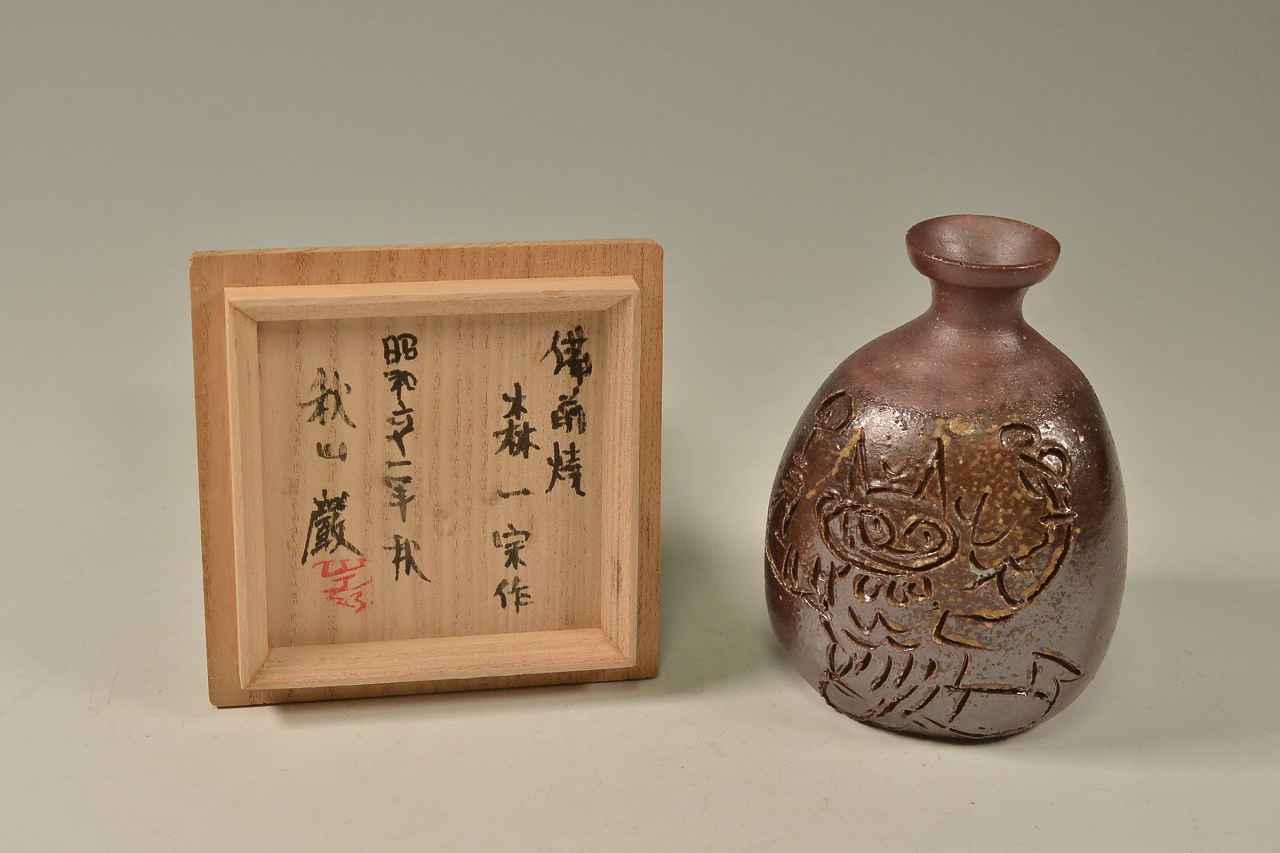 備前焼
森一宗作
昭和六十二年秋
秋山巌